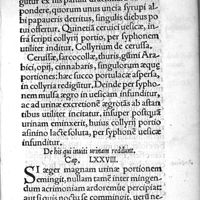 gutur ex his paruū
ponder̄e, quorum unus uncia syrupi al-
bi papaueris detritus, singulis diebus po
tui offertur, Quinetiā ceruici uesicæ, in-
frà scripti collyrij portio, per syphonem
utiliter inditur. Collyrium de cerussa.
Cerussæ, sarcocollæ, thuris, gūmi Ara-
bici, opij, cinnabaris, singulorum æquę
portiones: hæc succo portulacę aspersa,
in collyria redigito. Deinde per syphō-
nem mulsa ægro in uesicam infunditur,
ac ad urinæ excretionē ægrotās ab astan
tibus utiliter incitatur, insuper postquā
urinam eminxerit, huius collyrij portio
asinino lacte soluta, per syphonē uesicæ
infunditur.
De his qui inuiti urinam reddunt.
Cap. LXXVIII.
SI æger magnam urinæ portionem
semingit, nullam tamē inter mingen-
dum acrimoniam ardoremúe percipiat:
aut suis noctu se commingit, uerū ne-